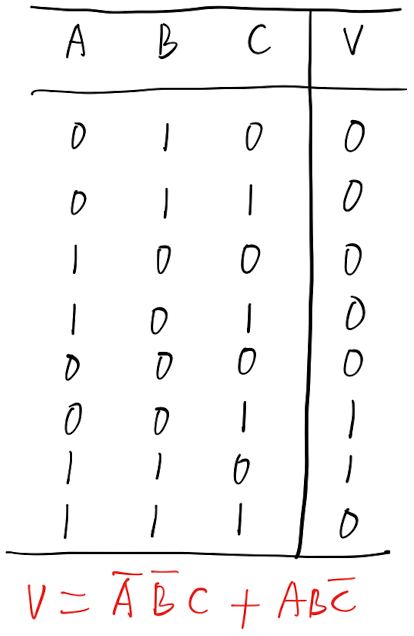 A B C V
0 1 0 0
0 1 1 0
1 0 0 0
1 0 1 0
0 0 0 0
0 0 1 1
1 1 0 1
1 1 1 0
V = A̅ B̅ C + A B C̅